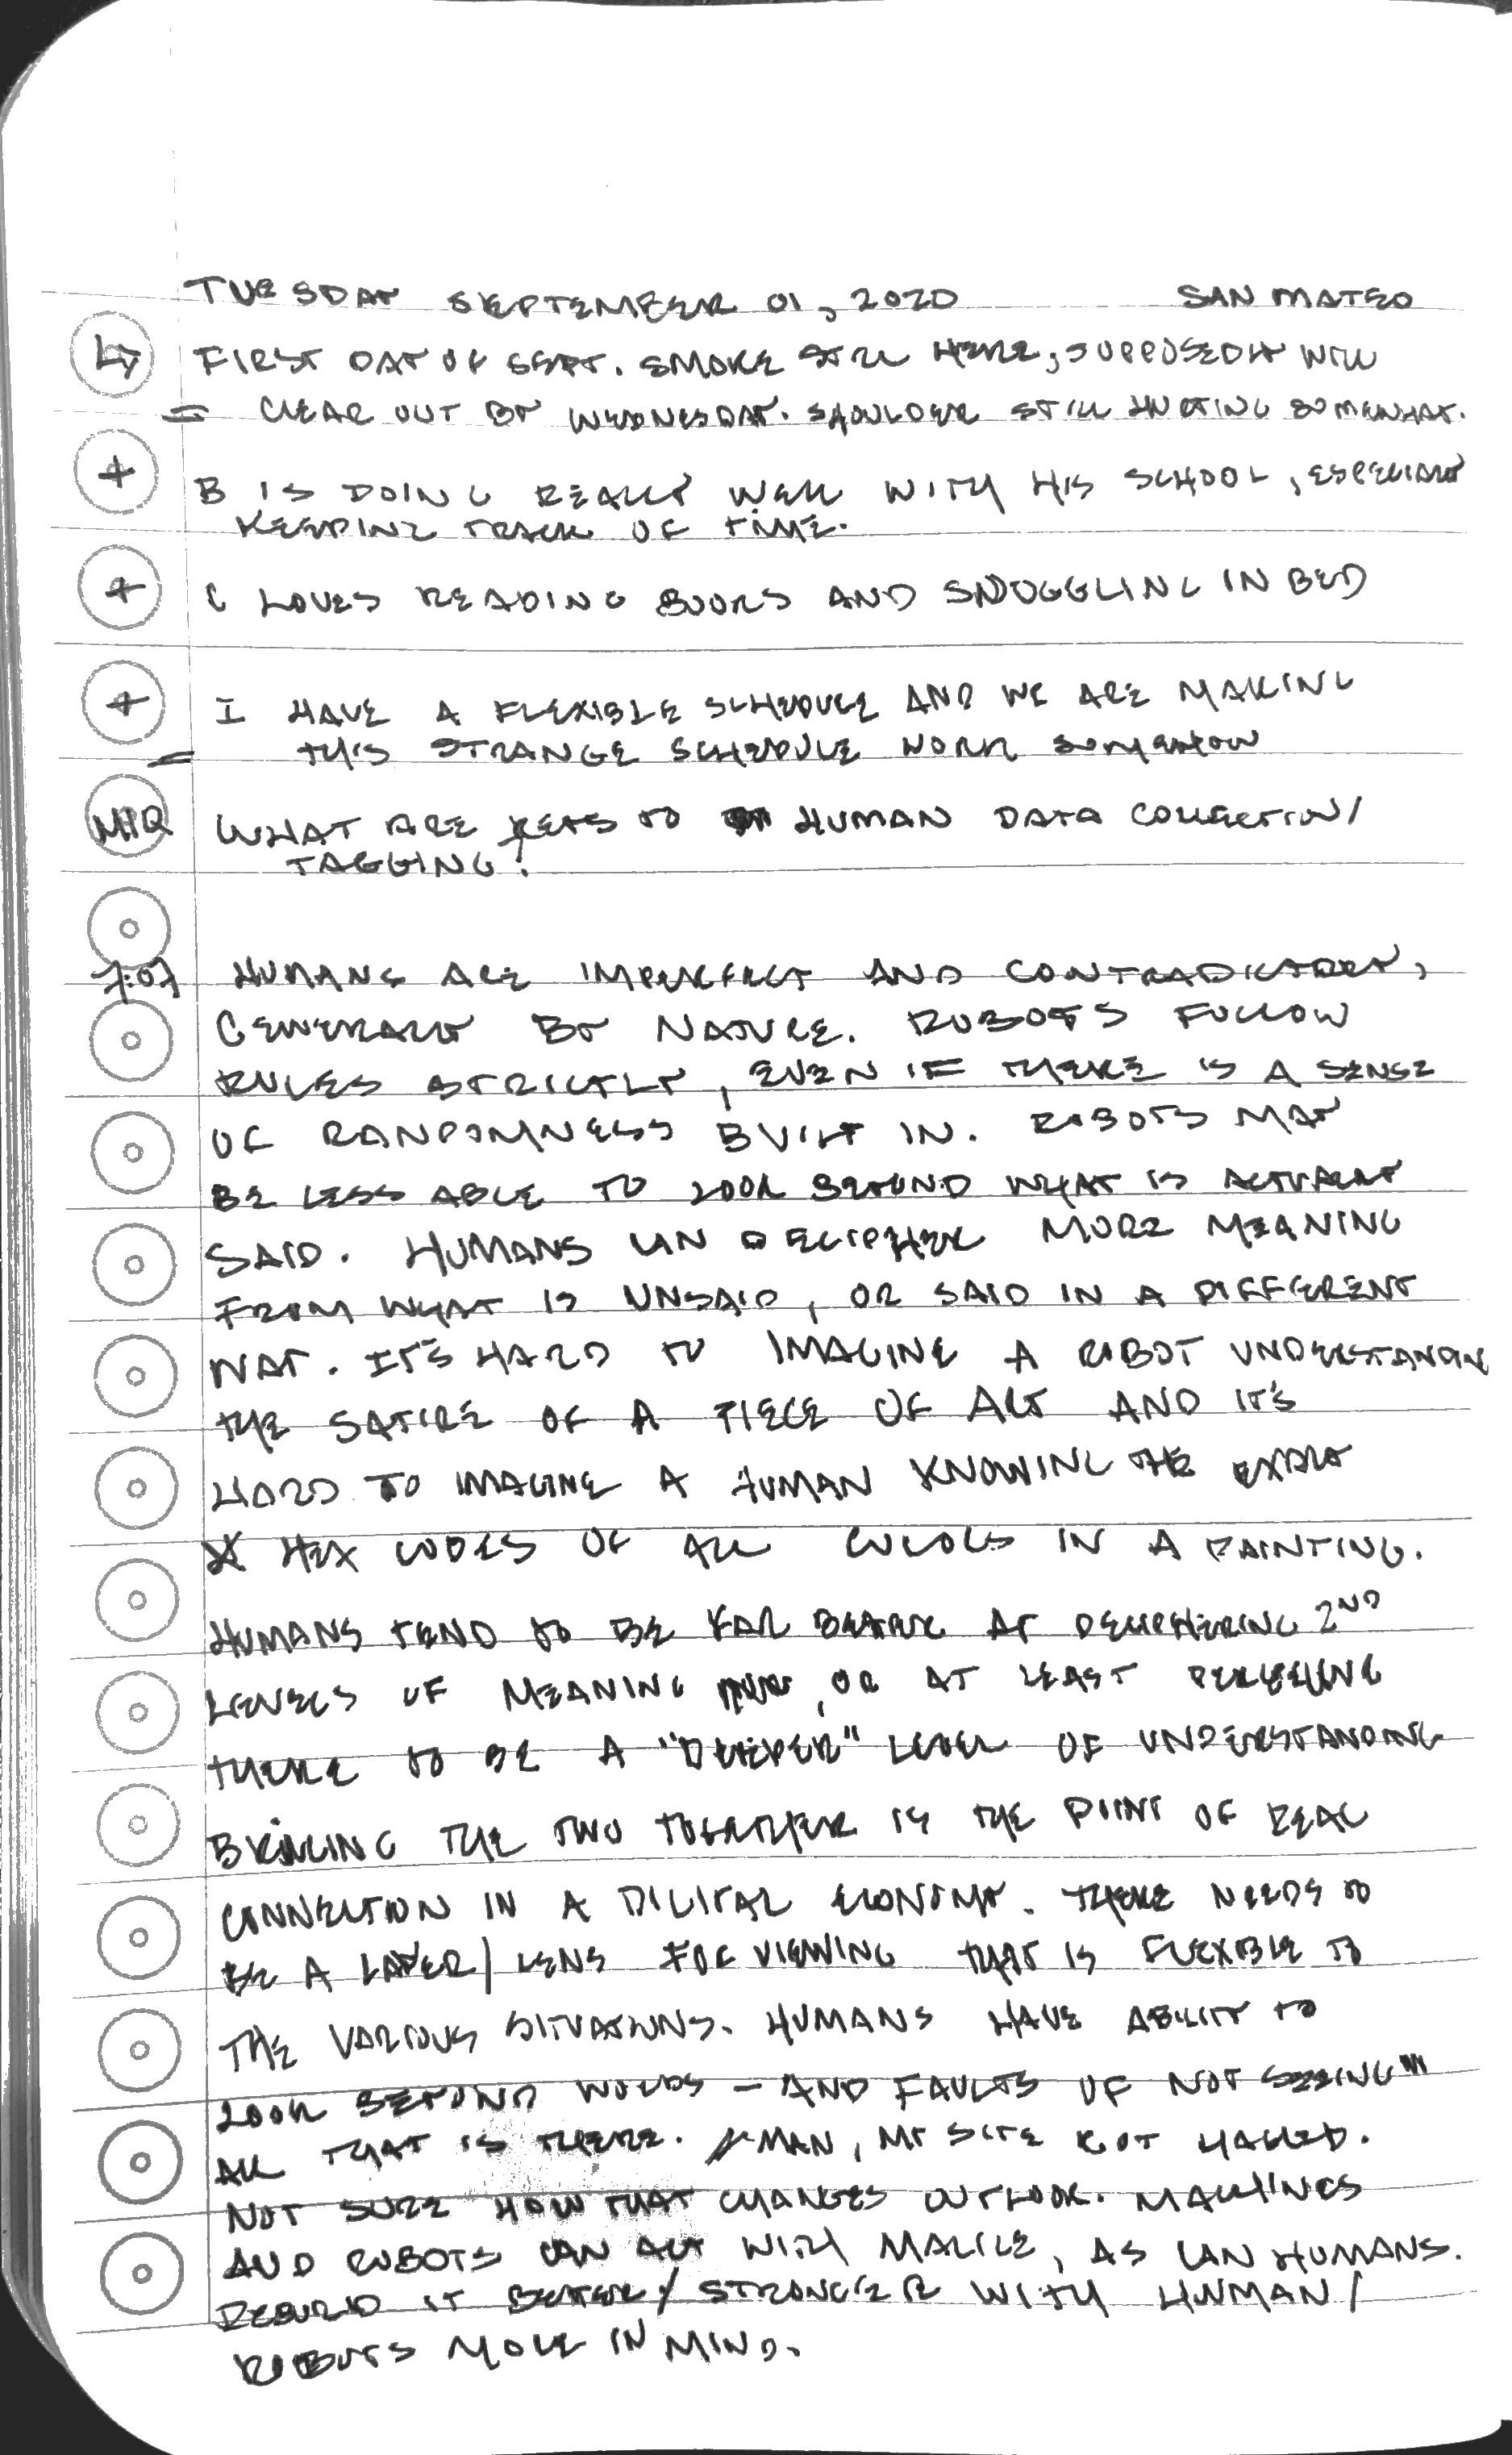 TUESDAY SEPTEMBER 01, 2020 SAN MATEO
FIRST DAY OF SEPT. SMOKE STILL HERE, SUPPOSEDLY WILL
= CLEAR OUT BY WEDNESDAY. SHOULDER STILL HURTING SOMEWHAT.
+ B IS DOING REALLY WELL WITH HIS SCHOOL, ESPECIALLY
KEEPING TRACK OF TIME.
+ C LOVES READING BOOKS AND SNUGGLING IN BED
+ I HAVE A FLEXIBLE SCHEDULE AND WE ARE MAKING
= THIS STRANGE SCHEDULE WORK SOMEHOW
MIQ WHAT ARE KEYS TO HUMAN DATA COLLECTION/
TAGGING?
7:07 HUMANS ARE IMPERFECT AND CONTRADICTORY,
GENERALLY BY NATURE. ROBOTS FOLLOW
RULES STRICTLY, EVEN IF THERE IS A SENSE
OF RANDOMNESS BUILT IN. ROBOTS MAY
BE LESS ABLE TO LOOK BEYOND WHAT IS ACTUALLY
SAID. HUMANS CAN DECIPHER MORE MEANING
FROM WHAT IS UNSAID, OR SAID IN A DIFFERENT
WAY. IT'S HARD TO IMAGINE A ROBOT UNDERSTANDING
THE SATIRE OF A PIECE OF ART AND IT'S
HARD TO IMAGINE A HUMAN KNOWING THE EXACT
HEX CODES OF ALL COLORS IN A PAINTING.
HUMANS TEND TO BE FAR BETTER AT DECIPHERING 2ND
LEVELS OF MEANING, OR AT LEAST PERCEIVING
THERE TO BE A "DEEPER" LEVEL OF UNDERSTANDING
BRINGING THE TWO TOGETHER IS THE POINT OF REAL
CONNECTION IN A DIGITAL ECONOMY. THERE NEEDS TO
BE A LAYER/LENS FOR VIEWING THAT IS FLEXIBLE TO
THE VARIOUS SITUATIONS. HUMANS HAVE ABILITY TO
LOOK BEYOND WORDS - AND FAULTS OF NOT SEEING
ALL THAT IS THERE. MAN, MY SITE GOT HACKED.
NOT SURE HOW THAT CHANGES OUTLOOK. MACHINES
AND ROBOTS CAN ACT WITH MALICE, AS CAN HUMANS.
REBUILD IT BETTER/STRONGER WITH HUMAN/
ROBOTS MORE IN MIND.